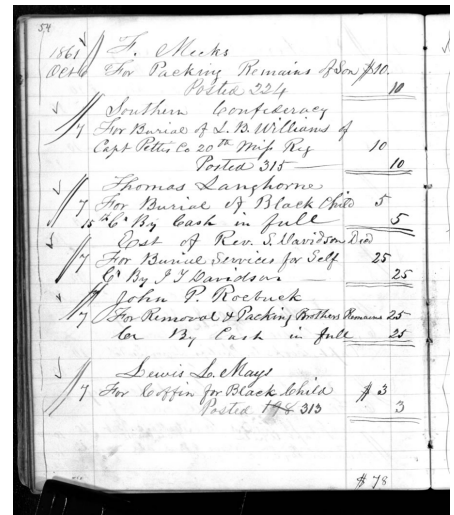 54
1861 F. Meeks
Oct 6 For Packing Remains of Son $10.
Posted 224 10
Southern Confederacy
7 For Burial of L. B. Williams of
Capt Pettis Co 20th Miss Reg 10
Posted 315 10
Thomas Langhorne
7 For Burial of Black Child 5
15th Cr By Cash in full 5
Est of Rev. S. Davidson Died
7 For Burial Services for Self 25
Cr By J T Davidson 25
John P. Roebuck
7 For Removal & Packing Brothers Remains 25
Cr By Cash in full 25
Lewis L. Mays
7 For Coffin for Black Child $3
Posted 198 313 3
$78